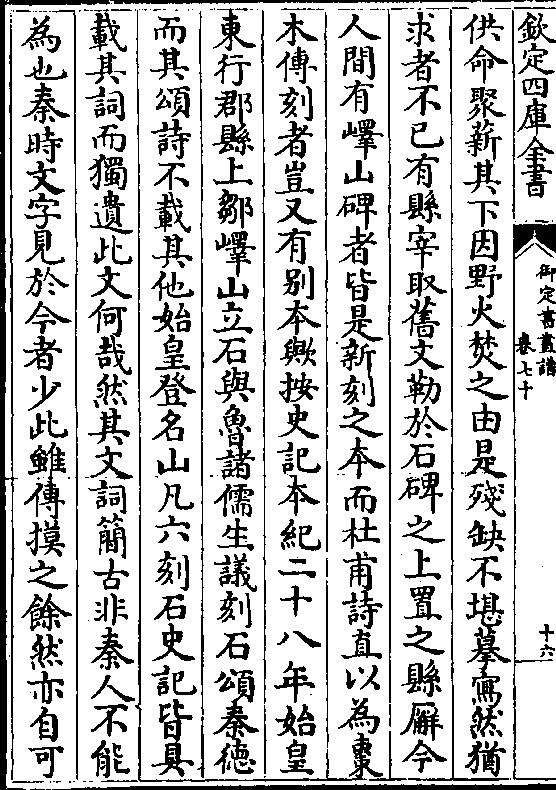 欽定四庫全書
御定書畫譜
卷七十
十六
供命聚薪其下因野火焚之由是殘缺不堪摹寫然猶
求者不已有縣宰取舊文勒於石碑之上置之縣廨今
人間有嶧山碑者皆是新刻之本而杜甫詩直以為棗
木傳刻者豈又有别本歟按史記本紀二十八年始皇
東行郡縣上鄒嶧山立石與魯諸儒生議刻石頌秦德
而其頌詩不載其他始皇登名山凡六刻石史記皆具
載其詞而獨遺此文何哉然其文詞簡古非秦人不能
為也秦時文字見於今者少此雖傳摸之餘然亦自可